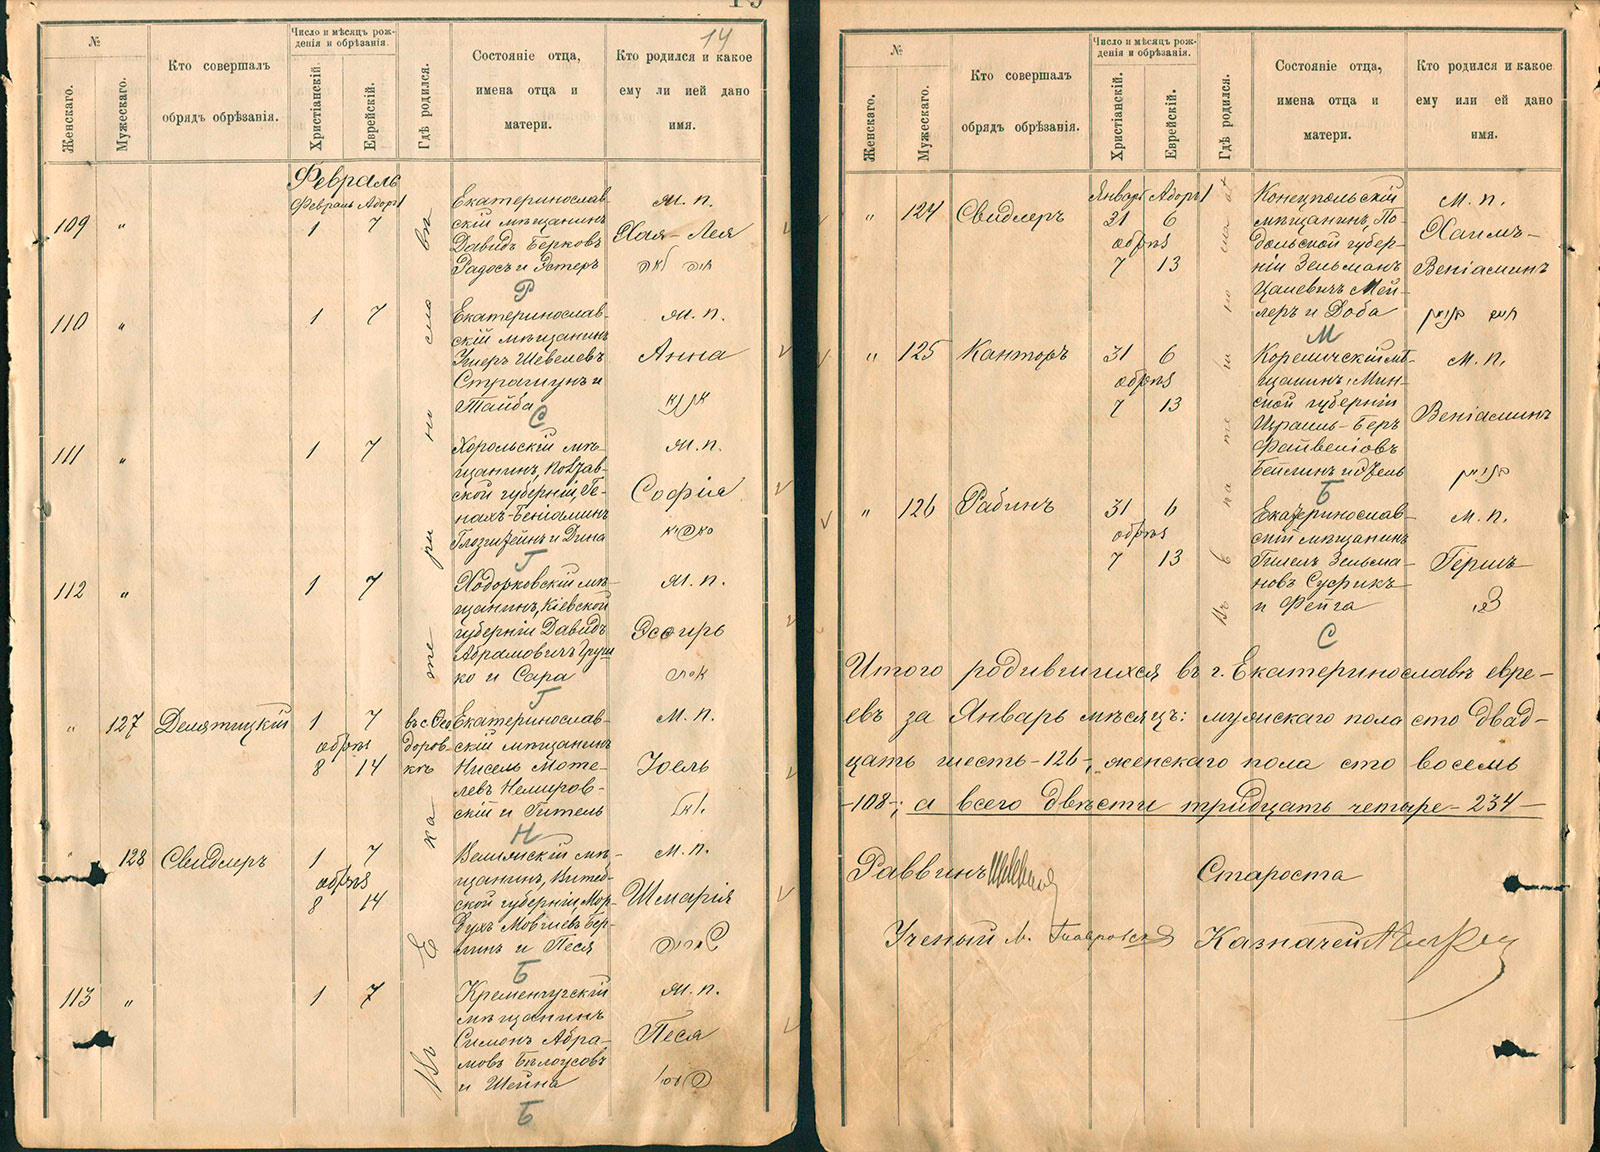 14
№
Женскаго.
Мужескаго.
Кто совершалъ
обрядъ обрѣзанія.
Число и мѣсяцъ рож-
денія и обрѣзанія.
Христіанскій.
Еврейскій.
Гдѣ родился.
Состояніе отца,
имена отца и
матери.
Кто родился и какое
ему ли ией дано
имя.
Февраль
Февраль Адоръ 1
Въ Екатеринославѣ
109 " 1 7
Екатеринослав-
скій мѣщанинъ
Давидъ Берковъ
Радосъ и Эстеръ
Р
Ж. п.
Хая-Лея
110 " 1 7
Екатеринослав-
скій мѣщанинъ
Шевелевъ
Страшунъ и
Тайба
С
Ж. п.
Анна
111 " 1 7
Хорольскій мѣ-
щанинъ, Полтав-
ской губерніи Ге-
нахъ-Беніаминъ
Глозштейнъ и Дина
Г
Ж. п.
Софія
112 " 1 7
Ходорковскій мѣ-
щанинъ, Кіевской
губерніи Давидъ
Абрамовичъ Груш-
ко и Сара
Г
Ж. п.
Эсѳирь
" 127 Делятицкій 1 7
обрѣз
8 14
Екатеринослав-
скій мѣщанинъ
Нисель Моте-
левъ Немиров-
скій и Гитель
Н
М. п.
Іоель
" 128 Свидлеръ 1 7
обрѣз
8 14
Велижскій мѣ-
щанинъ, Витеб-
ской губерніи, Мор-
духъ Мовшевъ Бер-
линъ и Песя
Б
М. п.
Шмарія
113 " 1 7
Кременчугскій
мѣщанинъ
Симонъ Абра-
мовъ Бѣлоусовъ
и Шейна
Б
Ж. п.
Песя
№
Женскаго.
Мужескаго.
Кто совершалъ
обрядъ обрѣзанія.
Число и мѣсяцъ рож-
денія и обрѣзанія.
Христіанскій.
Еврейскій.
Гдѣ родился.
Состояніе отца,
имена отца и
матери.
Кто родился и какое
ему или ей дано
имя.
Въ Екатеринославѣ
Январь Адоръ 1
" 124 Свидлеръ 31 6
обрѣз
7 13
Конецпольскій
мѣщанинъ, По-
дольской губер-
ніи Зельманъ
Цалевичъ Мей-
леръ и Доба
М
М. п.
Хаимъ-
Веніаминъ
חיים בנימין
" 125 Канторъ 31 6
обрѣз
7 13
Кореличскій мѣ-
щанинъ, Мин-
ской губерніи
Израиль-Беръ
Файвешовъ
М. п.
Веніаминъ
בנימין
Б
" 126 Рабинъ 31 6
обрѣз
7 13
Екатеринослав-
скій мѣщанинъ
Гишель Зельма-
новъ Суфрикъ
и Фейга
С
М. п.
Гершъ
Итого родившихся въ г. Екатеринославѣ евре-
евъ за Январь мѣсяцъ: мужскаго пола сто двад-
цать шесть -126-, женскаго пола сто восемь
-108-; а всего двѣсти тридцать четыре - 234 -
Раввинъ
Староста
Ученый
Казначей